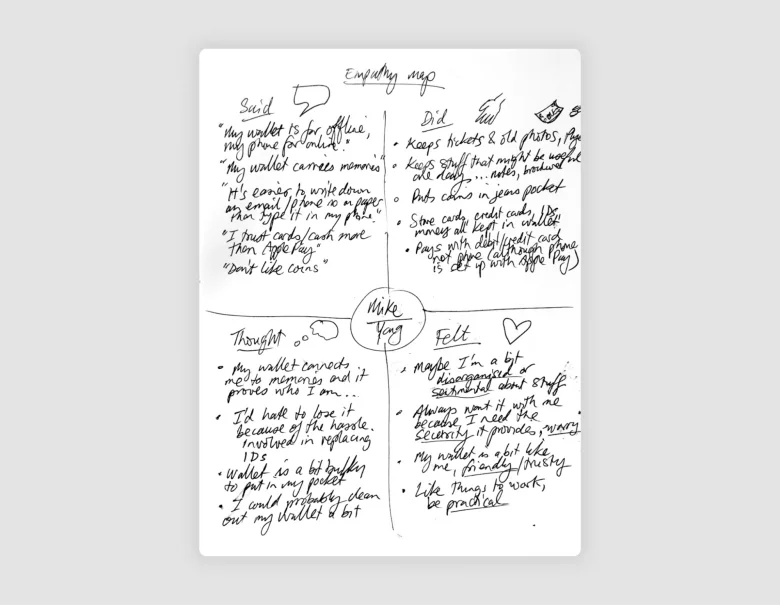 Empathy map
Said
"My wallet is for offline,
my phone for online."
"My wallet carries memories"
"It's easier to write down
an email/phone no on paper
than type it in my phone."
"I trust cards/cash more
than Apple Pay"
"Don't like coins"
Did
• Keeps tickets & old photos,
• Keeps stuff that might be useful
one day... notes,
• Puts coins in jeans pocket
• Store cards, credit cards, IDs
money all kept in wallet
• Pays with debit/credit cards
not phone (although phone
is set up with Apple Pay)
Mike
Yang
Thought
• My wallet connects
me to memories and it
proves who I am...
• I'd hate to lose it
because of the hassle
involved in replacing
IDs
• Wallet is a bit bulky
to put in my pocket
• I could probably clean
out my wallet a bit
Felt
• Maybe I'm a bit
disorganised or
sentimental about stuff
• Always want it with me
because I need the
security it provides, worry
• My wallet is a bit like
me, friendly/trusty
• Like things to work,
be practical